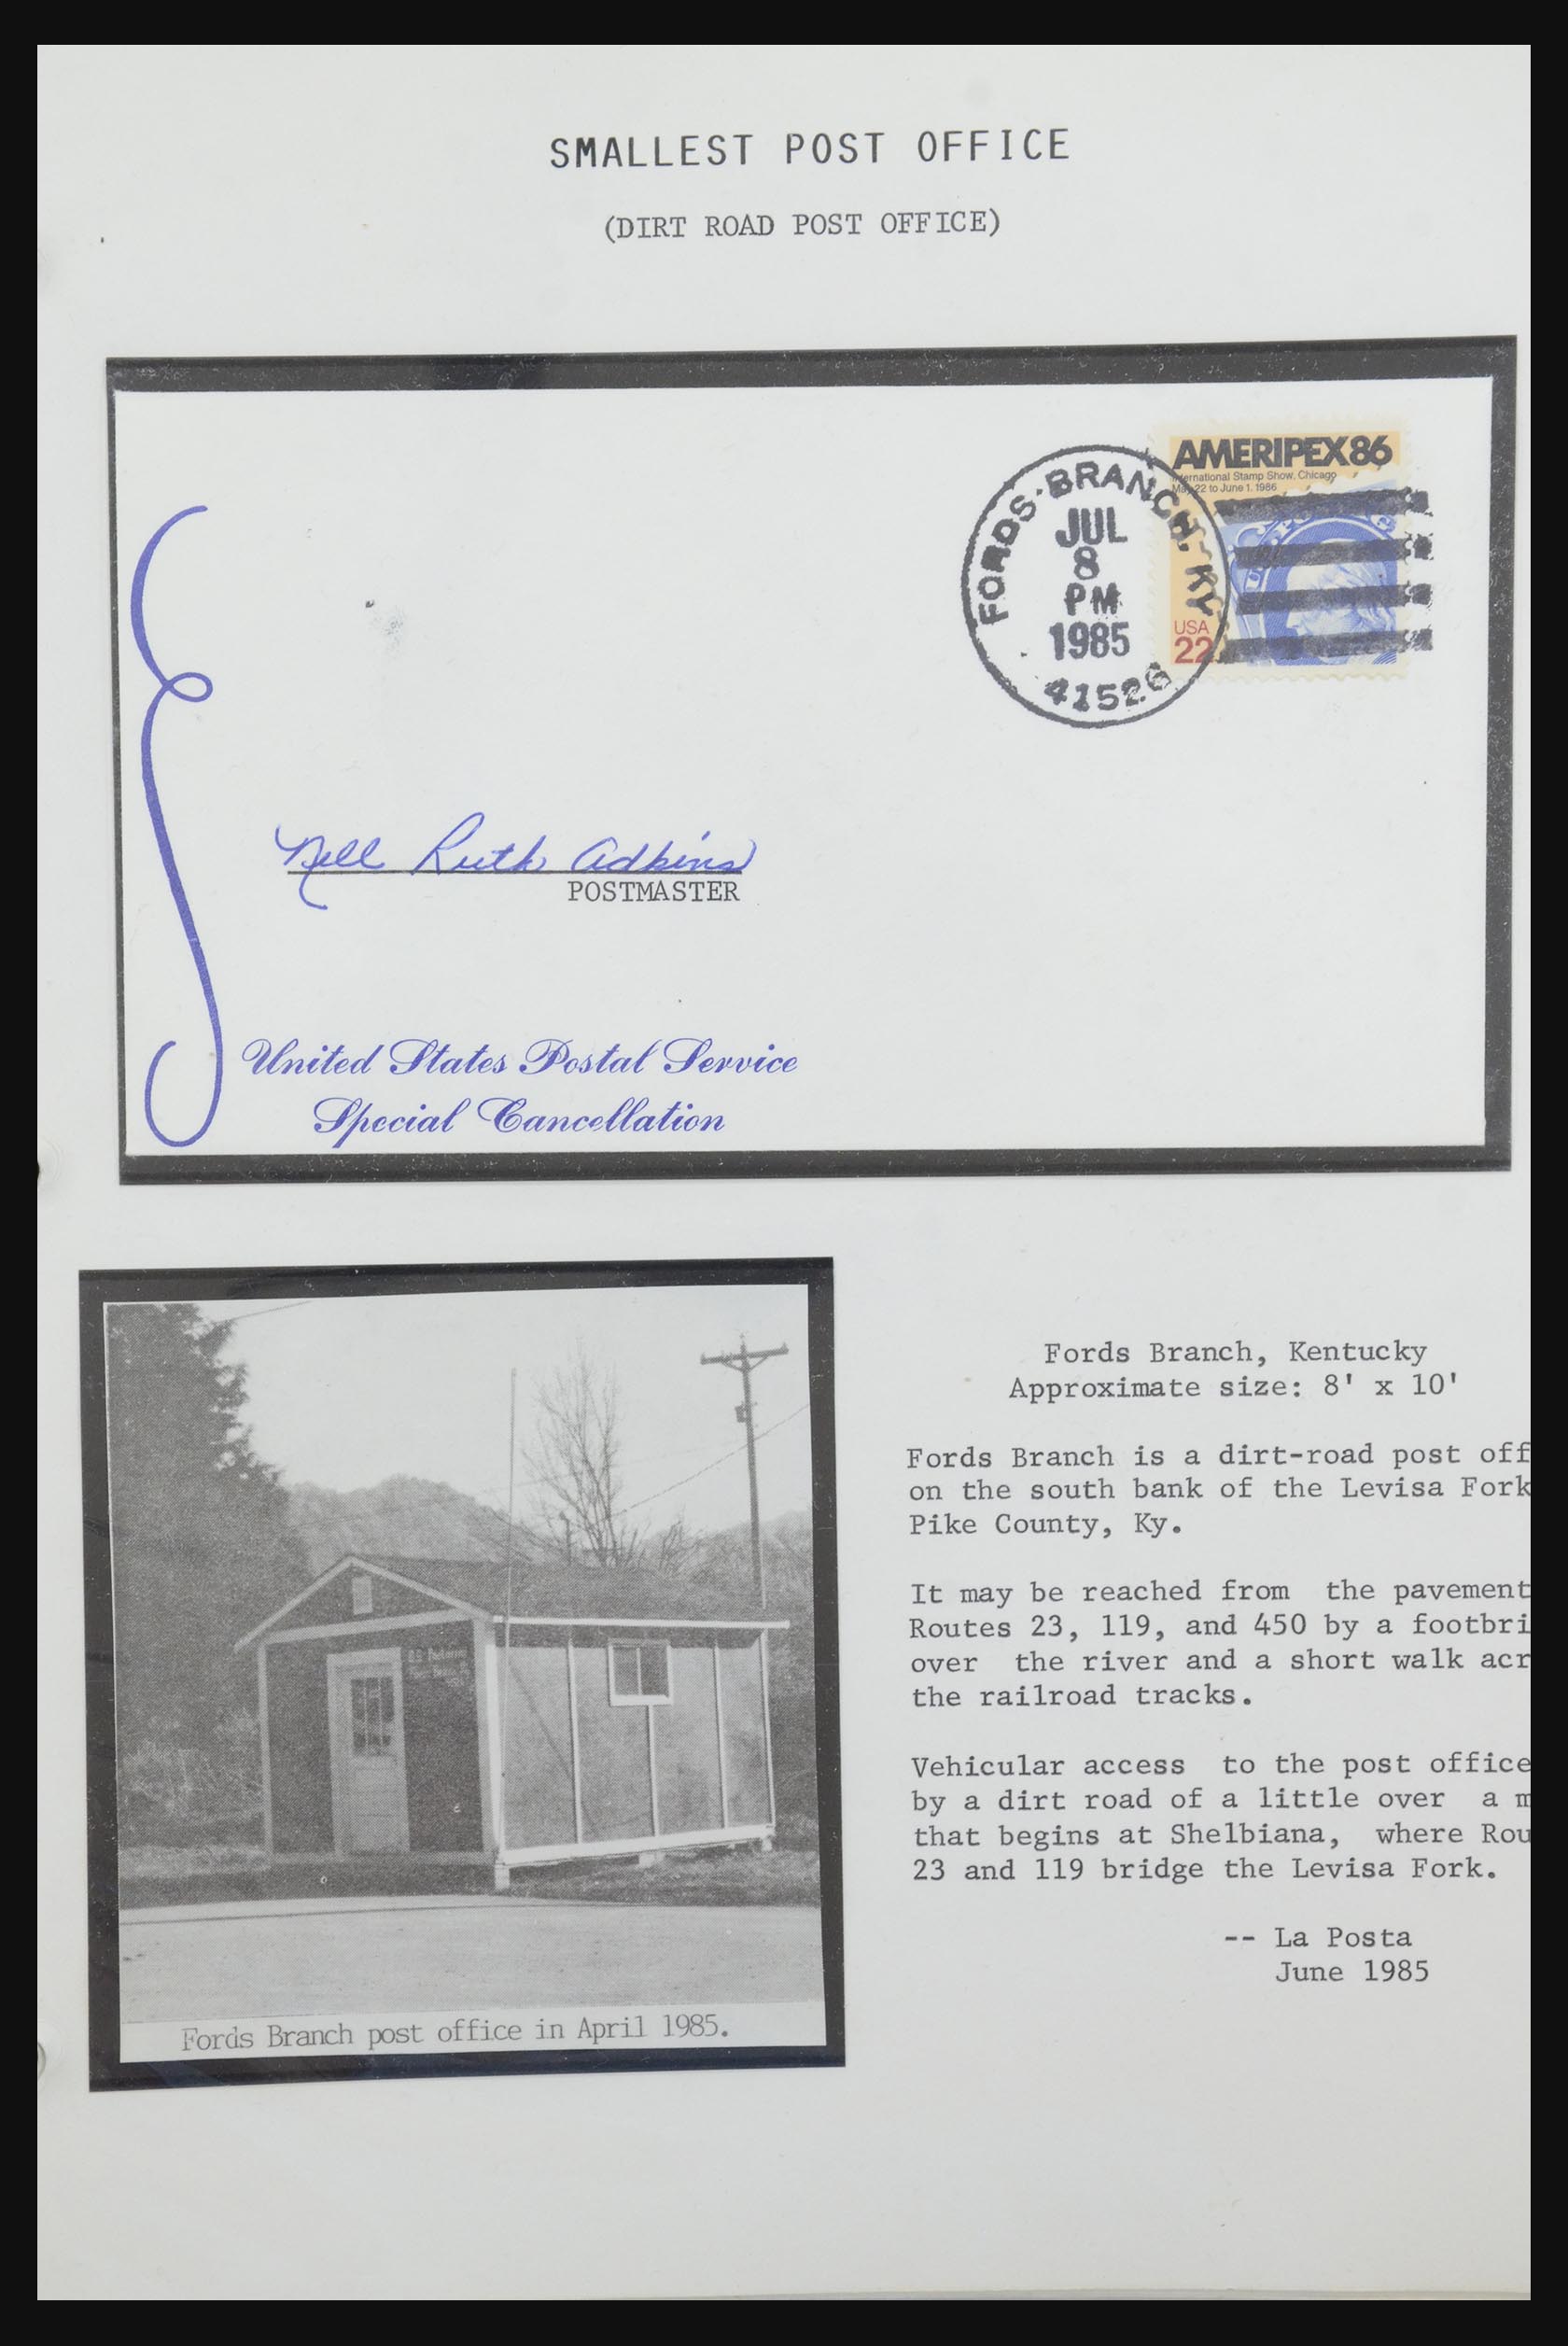 SMALLEST POST OFFICE
(DIRT ROAD POST OFFICE)
AMERIPEX86
International Stamp Show, Chicago
May 22 to June 1, 1986
USA
22
FORDS BRANCH, KY
JUL
8
PM
1985
41526
Nell Ruth Adkins
POSTMASTER
United States Postal Service
Special Cancellation
Fords Branch post office in April 1985.
Fords Branch, Kentucky
Approximate size: 8' x 10'
Fords Branch is a dirt-road post off
on the south bank of the Levisa Fork
Pike County, Ky.
It may be reached from the pavement
Routes 23, 119, and 450 by a footbri
over the river and a short walk acr
the railroad tracks.
Vehicular access to the post office
by a dirt road of a little over a m
that begins at Shelbiana, where Rou
23 and 119 bridge the Levisa Fork.
-- La Posta
June 1985